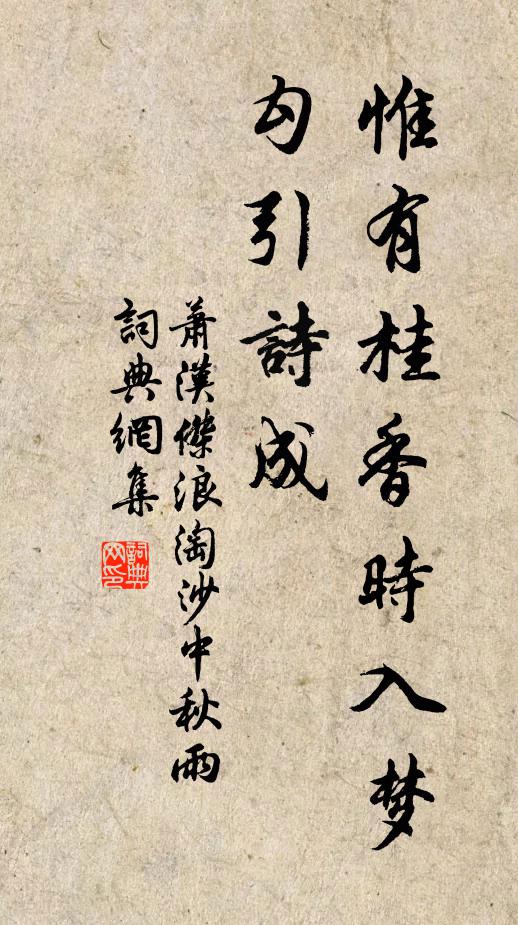 惟有桂香時入梦
勾引詩成
蕭漢傑浪淘沙中秋雨
詞典網集
詞典網印